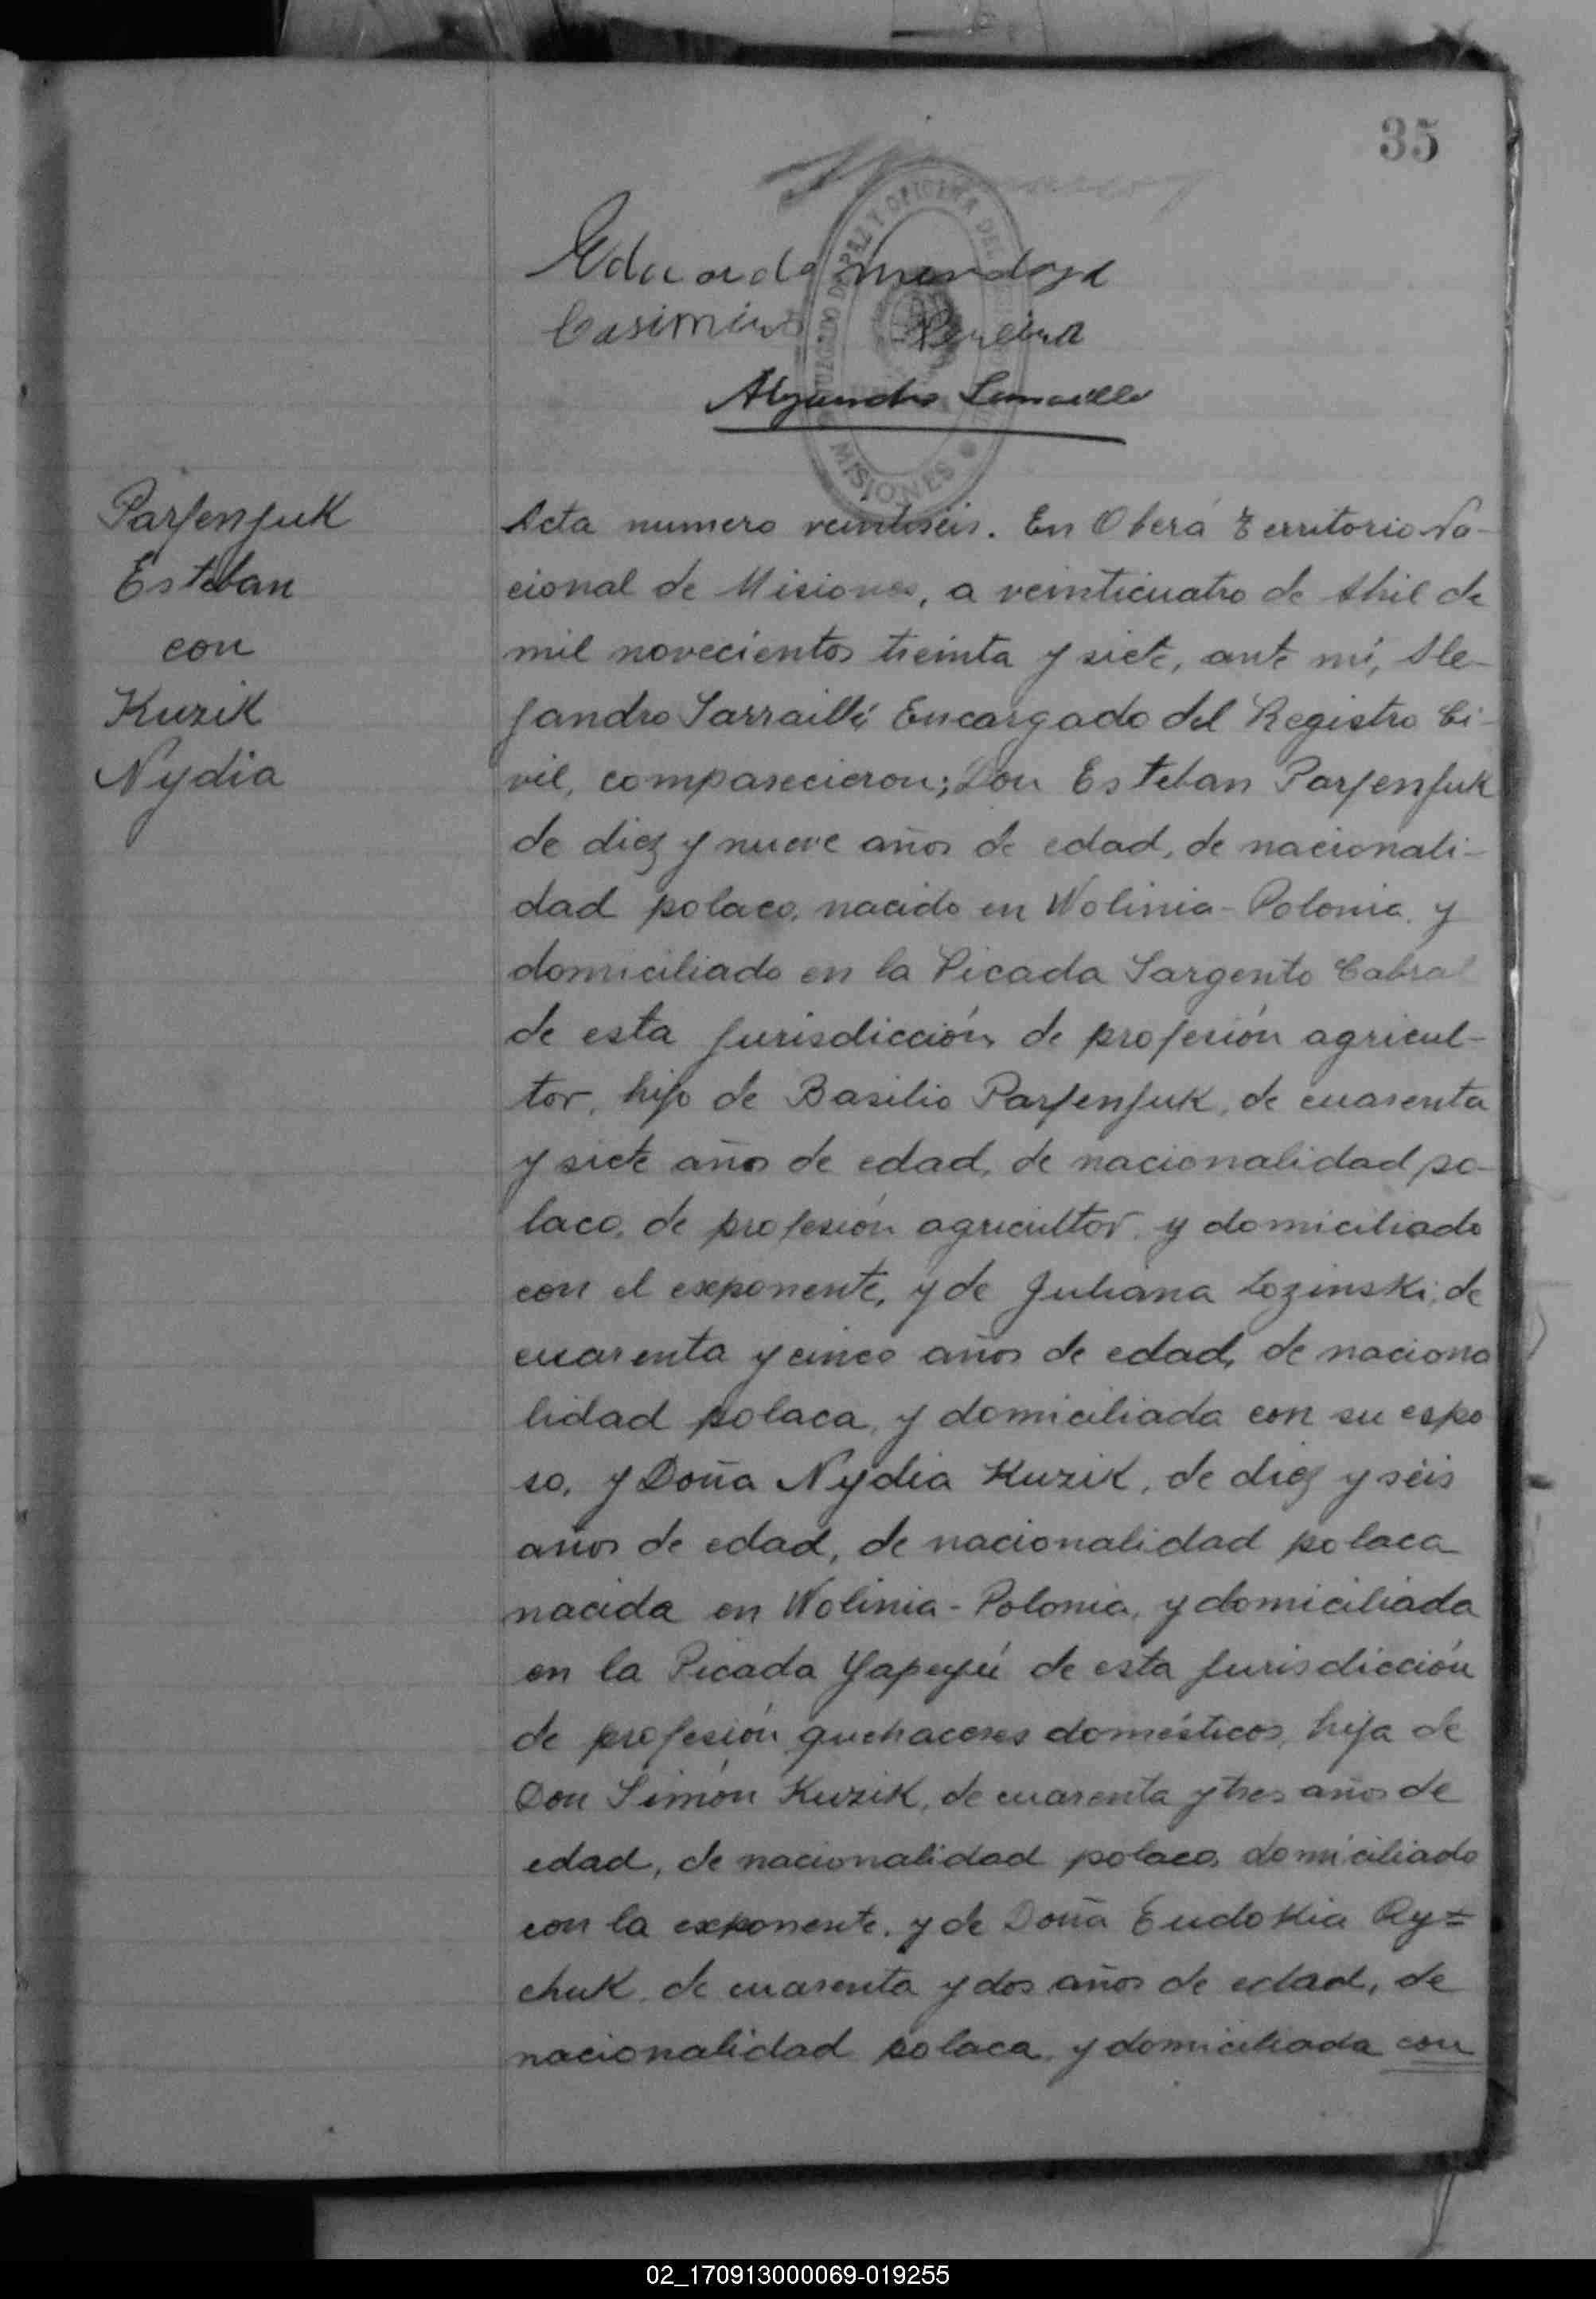 35
Eduardo Mendoza
Casimiro Pereira
MISIONES
Parfenjuk
Esteban
con
Kuzik
Nydia
Acta numero veintiseis. En Oberá Territorio Na-
cional de Misiones, a veinticuatro de Abril de
mil novecientos treinta y siete, ante mí, Ale-
jandro Sarraillé Encargado del Registro Ci-
vil, comparecieron; Don Esteban Parfenjuk
de diez y nueve años de edad, de nacionali-
dad polaco, nacido en Wolinia - Polonia, y
domiciliado en la Picada Sargento Cabral
de esta jurisdicción, de profesión agricul-
tor, hijo de Basilio Parfenjuk, de cuarenta
y siete años de edad, de nacionalidad po-
laco, de profesión agricultor, y domiciliado
con el exponente, y de Juliana Lozinski, de
cuarenta y cinco años de edad, de naciona
lidad polaca, y domiciliada con su espo
so, y Doña Nydia Kuzik, de diez y séis
años de edad, de nacionalidad polaca
nacida en Wolinia - Polonia, y domiciliada
en la Picada Yapeyú de esta jurisdicción
de profesión quehaceres domésticos, hija de
Don Simón Kuzik, de cuarenta y tres años de
edad, de nacionalidad polaco, domiciliado
con la exponente, y de Doña Eudokia Ry=
chuk, de cuarenta y dos años de edad, de
nacionalidad polaca, y domiciliada con
02_170913000069-019255